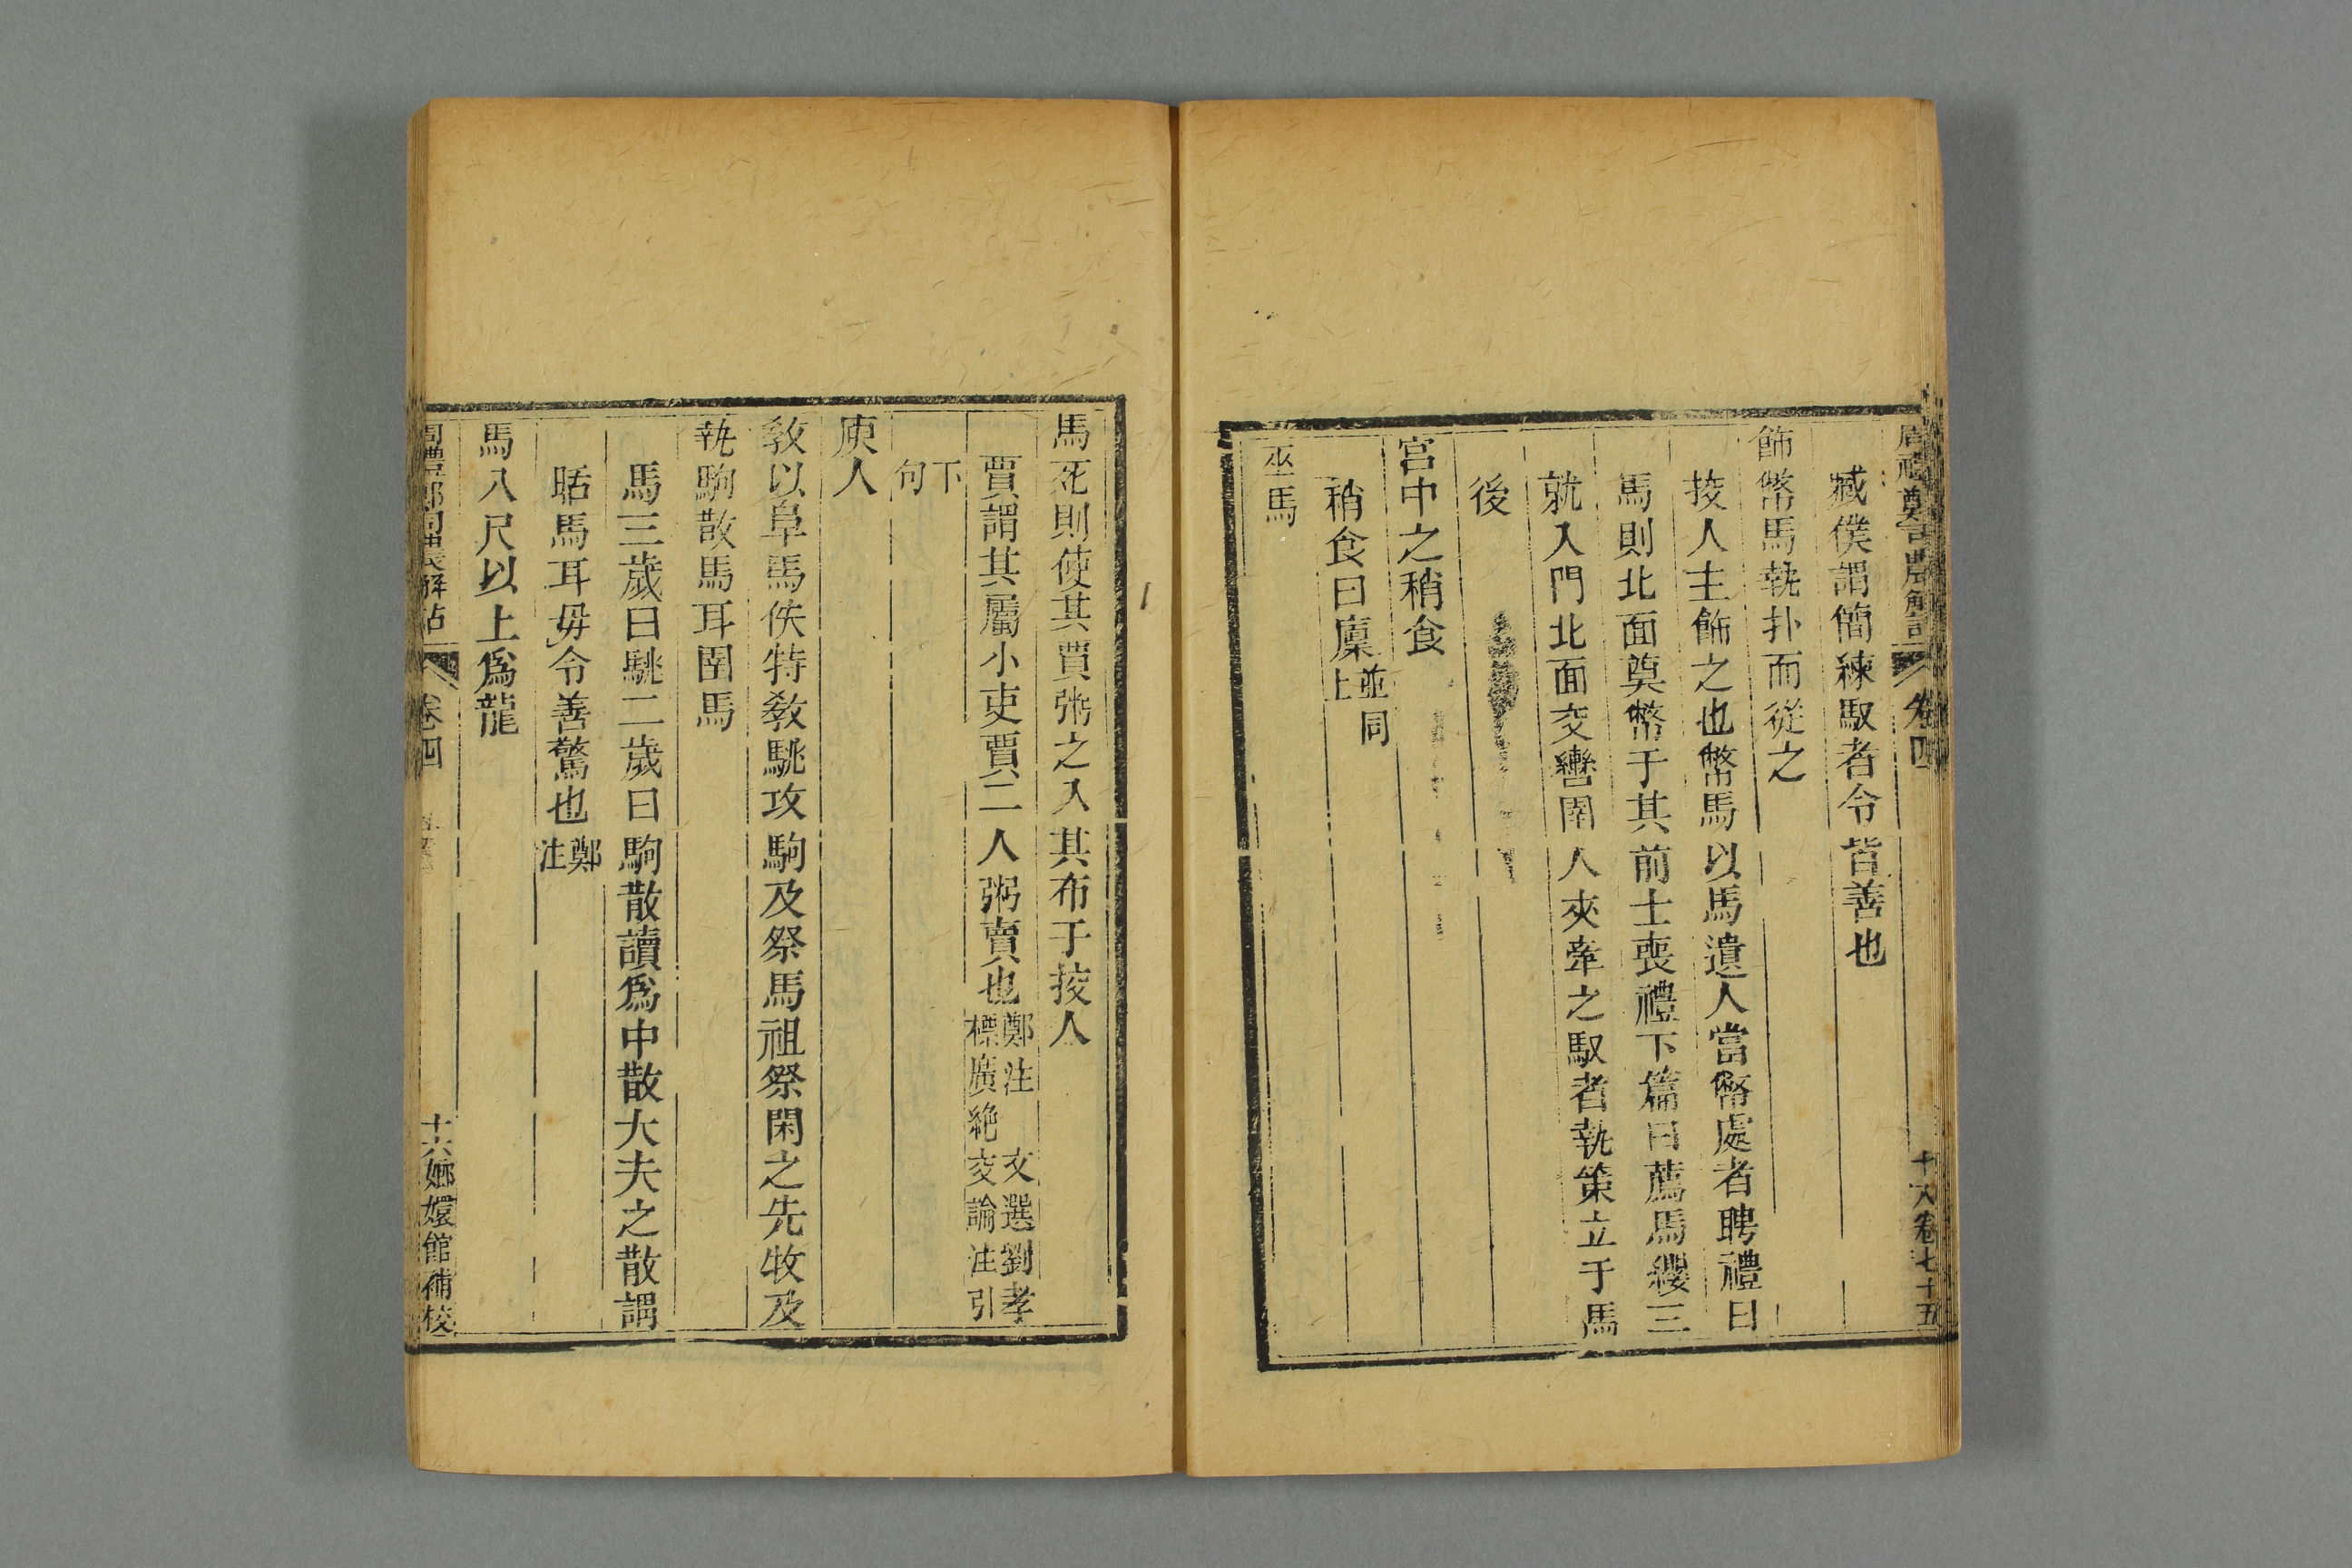 臧僕謂簡練馭者令皆善也
飾幣馬執扑而從之
挍人主飾之也幣馬以馬遺人當幣處者聘禮曰
馬則北面奠幣于其前士喪禮下篇曰薦馬纓三
就入門北面交轡圉人夾牽之馭者執策立于馬
後
宮中之稍食
稍食曰廩並同上
巫馬
馬死則使其賈粥之入其布于挍人
賈謂其屬小吏賈二人粥賣也鄭注 文選劉孝標廣絶交論注引
下句
庾人
敎以阜馬佚特敎駣攻駒及祭馬祖祭閑之先牧及
執駒散馬耳圉馬
馬三歲曰駣二歲曰駒散讀爲中散大夫之散謂
聒馬耳毋令善驚也鄭注
馬八尺以上爲龍
卷四
十六嫏嬛館補校